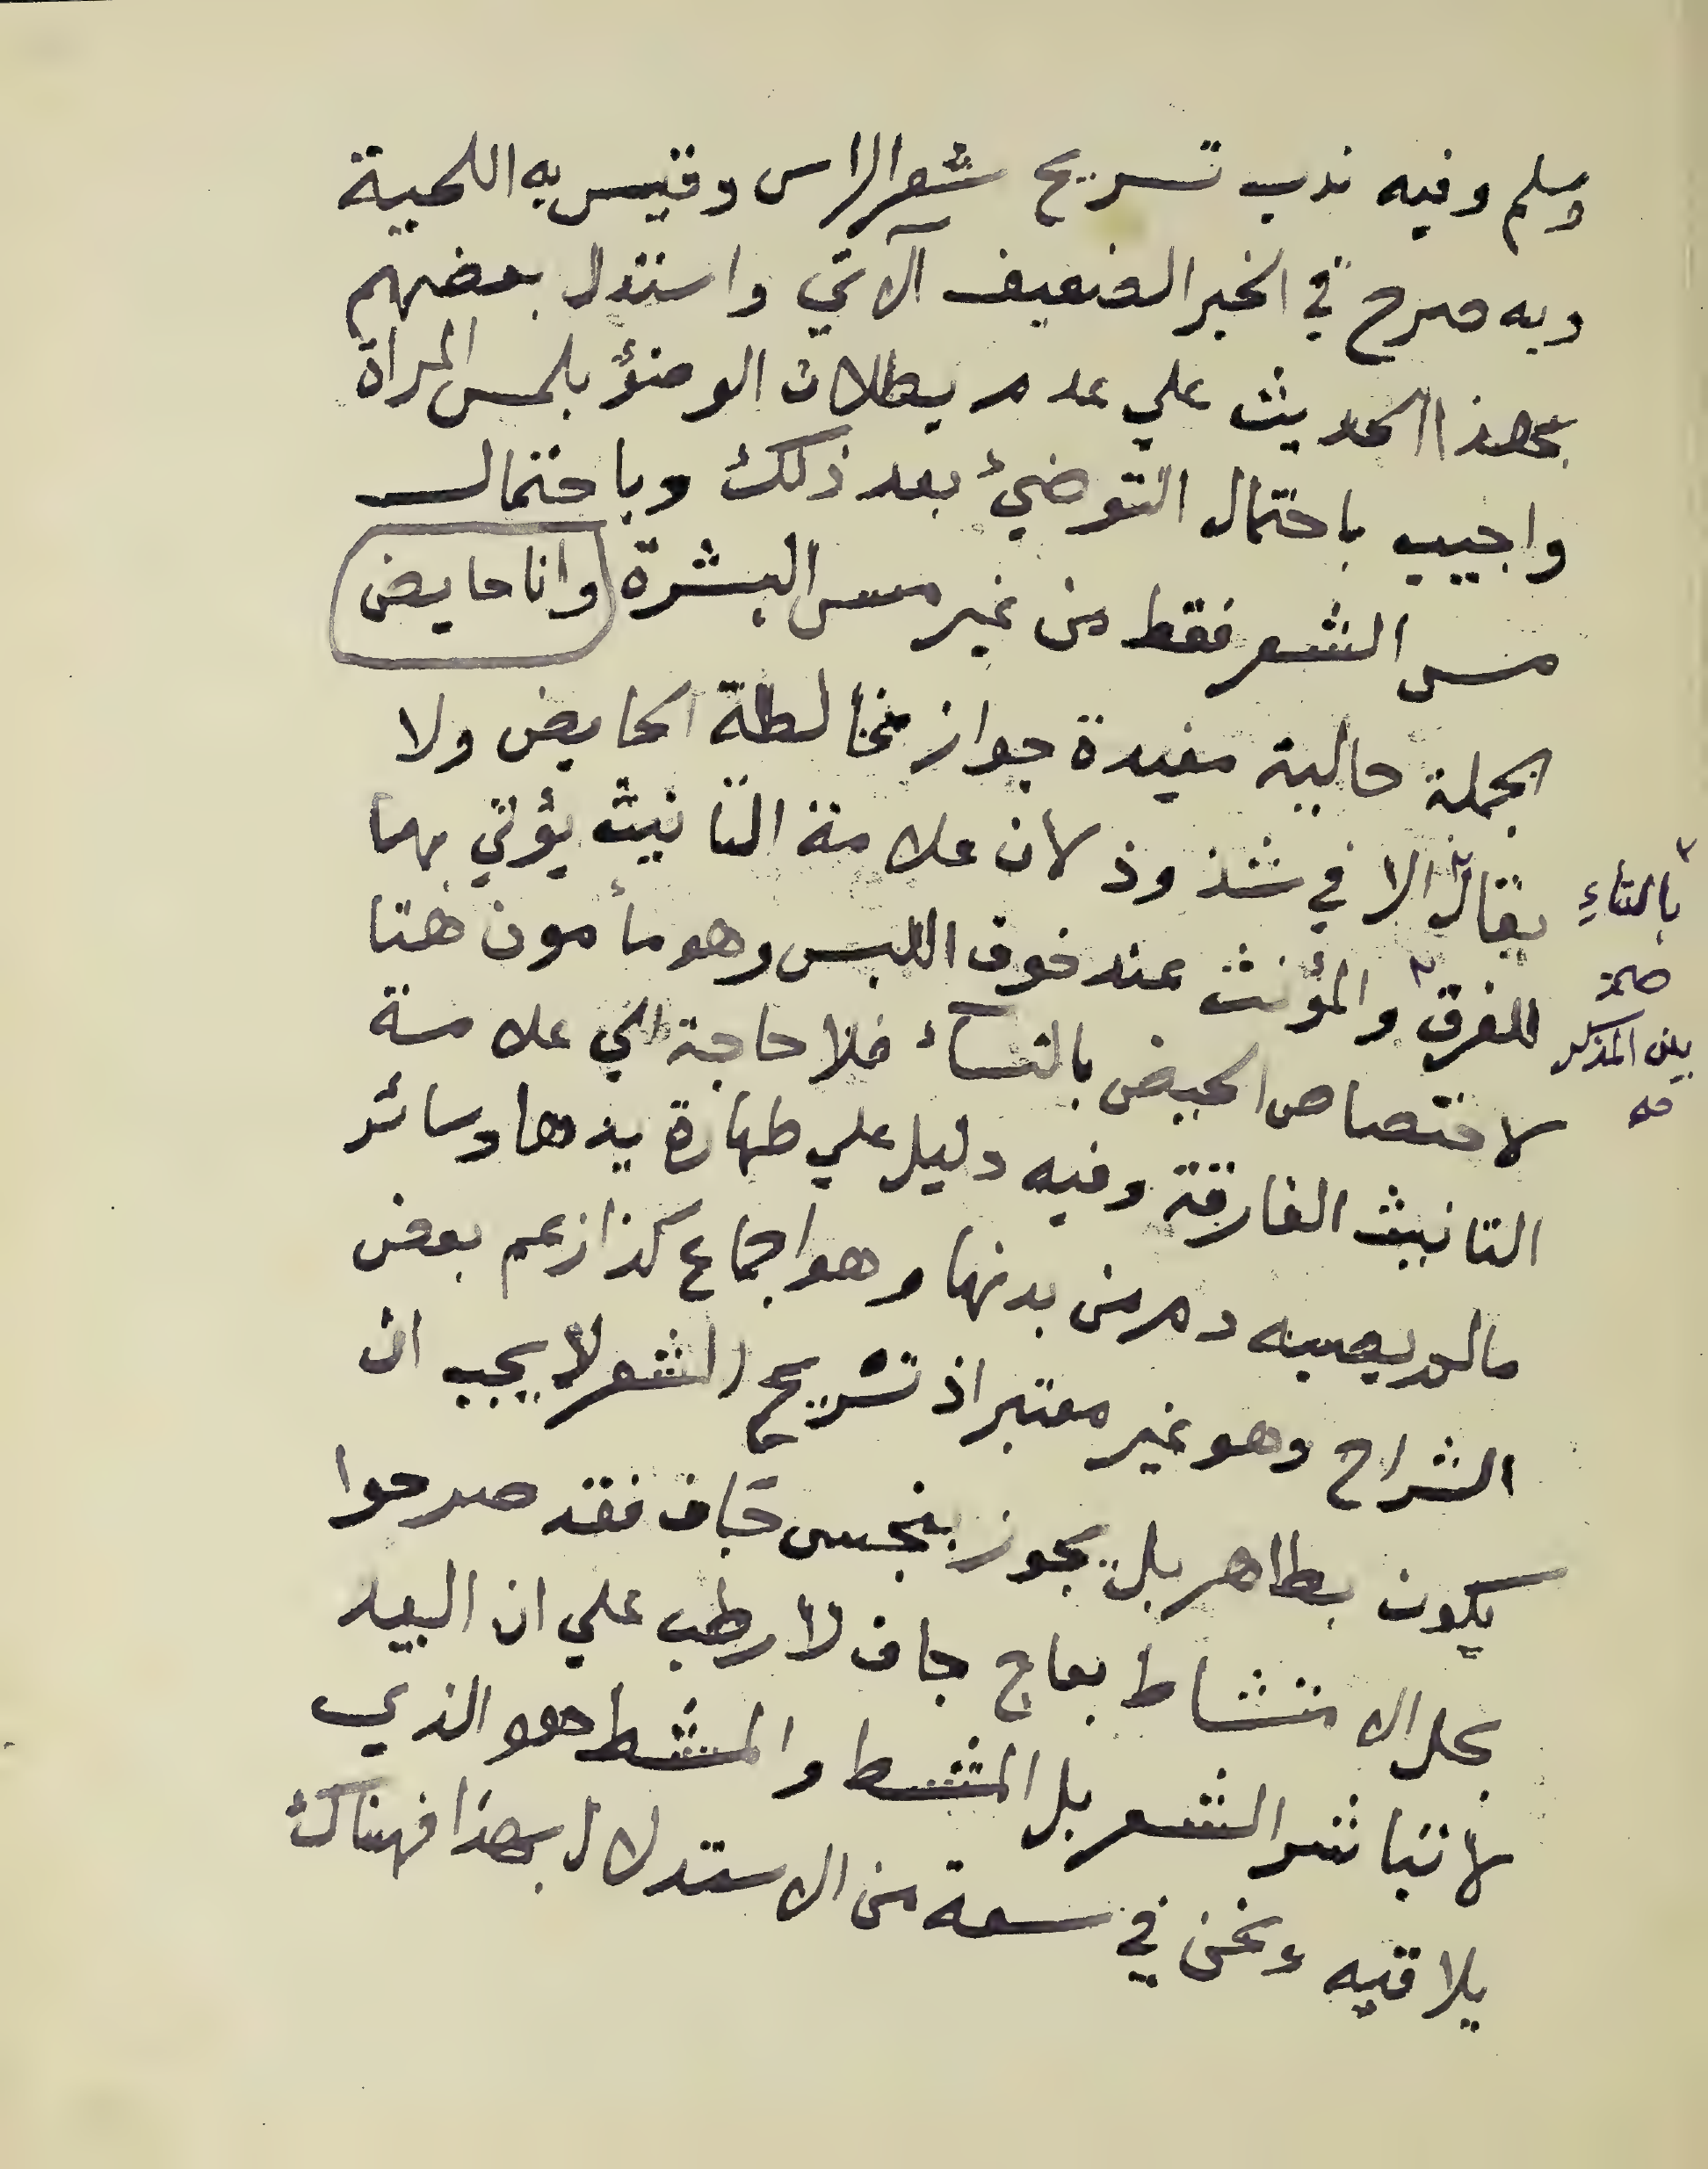 وسلم وفيه ندب تسريح شعر الراس وقيس به اللحية
وبه صرح في الخبر الضعيف الآتي واستدل بعضهم
بهذا الحديث علي عدم بطلان الوضؤ بلمس المراة
واجيب باحتمال التوضئ بعد ذلك وباحتمال
مس الشعر فقط من غير مس البشرة وانا حايض
الجملة حالية مفيدة جواز مخالطة الحايض ولا
يقال الا في شذوذ لان علامة التانيث يؤتي بها
للفرق والمؤنث عند خوف اللبس وهو مأمون هنا
لاختصاص الحيض بالنساء فلا حاجة الي علامة
التانيث الفارقة وفيه دليل علي طهارة يدها وسائر
مالم يصبه دم من بدنها وهو اجماع كذا زعم بعض
الشراح وهو غير معتبر اذ تسريح الشعر لا يجب ان
يكون بطاهر بل يجوز بنجس جاف فقد صرحوا
بحل الامتشاط بعاج جاف لا رطب علي ان اليد
لا تباشر الشعر بل المشط والمشط هو الذي
يلاقيه ونحن في سعة من الاستدلال بهذا فهناك
بالتاء
صح
بين المذكر
صح